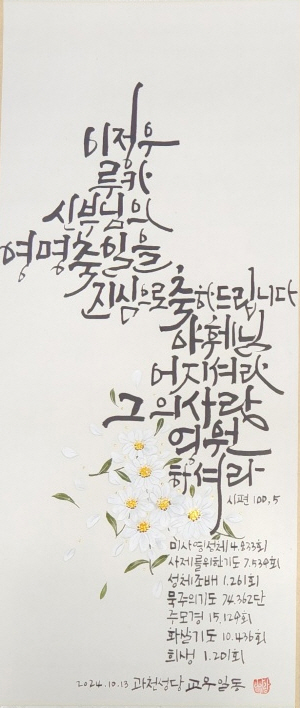 이정우
루카
신부님의
영명축일을
진심으로 축하드립니다
야훼님
어지셔라
그의 사랑
영원
하셔라
시편 100, 5
미사영성체 4.833회
사제를위한기도 7.539회
성체조배 1.261회
묵주의기도 74.362단
주모경 15.129회
화살기도 10.436회
희생 1.201회
2024.10.13 과천성당 교우일동